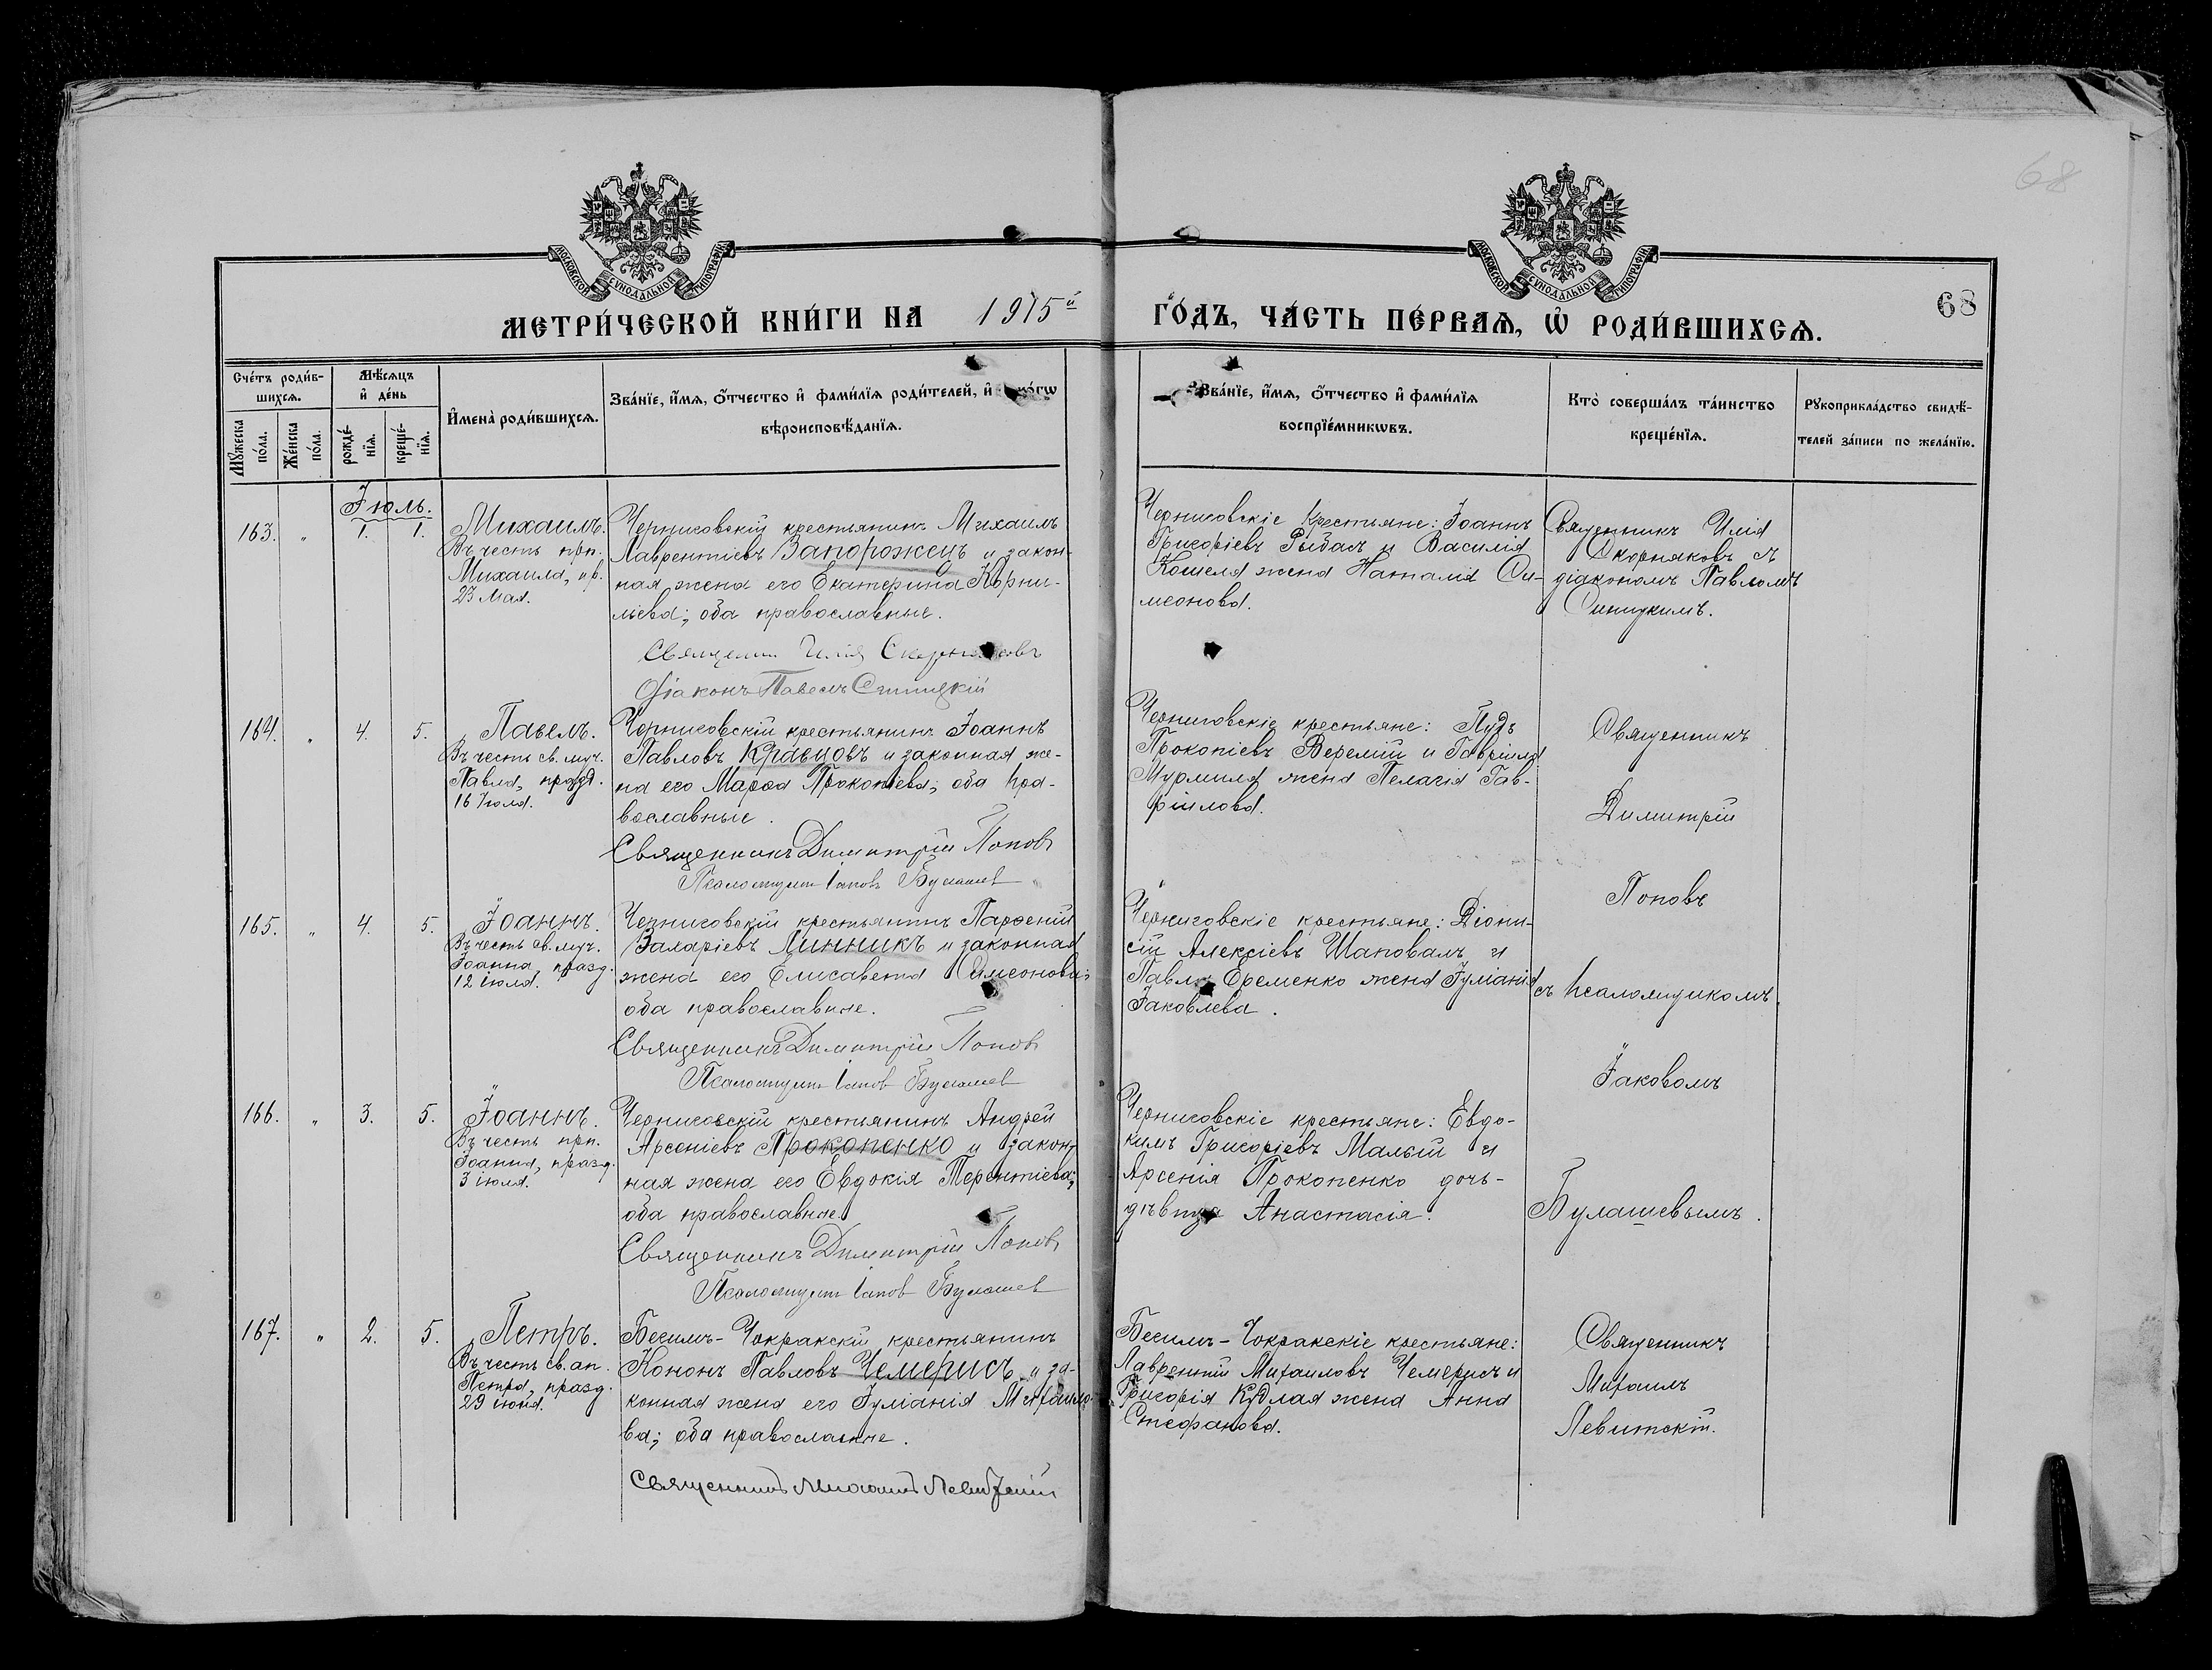 68
МОСКОВСКОЙ СѴНОДАЛЬНОЙ ТИПОГРАФІИ
МОСКОВСКОЙ СѴНОДАЛЬНОЙ ТИПОГРАФІИ
МЕТРИ́ЧЕСКОЙ КНИ́ГИ НА 1915й
ГО́ДЪ, ЧА́СТЬ ПЕ́РВАѦ, Ѡ РОДИ́ВШИХСѦ.
68
Сче́тъ роди́в-
шихсѧ.
Мꙋжеска
по́ла.
Же́нска
по́ла.
Мѣ́сѧцъ
и҆ де́нь
рожде́-
нїѧ.
креще́-
нїѧ.
И҆мена̀ роди́вшихсѧ.
Зва́нїе, и҆́мѧ, ѻ҆́тчество и҆ фами́лїѧ роди́телей, и҆
вѣроисповѣ́данїѧ.
Зва́нїе, и҆́мѧ, ѻ҆́тчество и҆ фами́лїѧ
воспрїе́мникѡвъ.
Кто̀ соверша́лъ та́инство
креще́нїѧ.
Рꙋкоприкла́дство свидѣ́-
телей за́писи по жела́нїю.
Іюль.
163. " 1. 1.
Михаилъ.
Въ честь прп.
Михаила, пр.
23 Мая.
Черниговскій крестьянинъ Михаилъ
Лаврентіевъ Запорожецъ и закон-
ная жена его Екатерина Корни-
льева; оба православные.
Илія Скорняковъ
Діаконъ Павелъ Синицкій
Черниговскіе крестьяне: Іоаннъ
Григоріевъ Рыбал и Василія
Кошеля жена Наталія Си-
меонова.
Священникъ Илія
Скорняковъ съ
діакономъ Павломъ
Синицкимъ.
164. " 4. 5.
Павелъ.
Въ честь св. муч.
Павла, празд.
16 Іюля.
Черниговскій крестьянинъ Іоаннъ
Павловъ Кравцовъ и законная же-
на его Марѳа Прокопіева; оба пра-
вославные.
Священникъ Димитрій Поповъ
Псаломщикъ Іаковъ Булашев
Черниговскіе крестьяне: Пудъ
Прокопіевъ Веремій и Гавріила
Мурмиля жена Пелагія Гав-
ріилова.
Священникъ
Димитрій
Поповъ
съ псаломщикомъ
Іаковомъ
Булашевымъ.
165. " 4. 5.
Іоаннъ.
Въ честь св. муч.
Іоанна, празд.
12 іюля.
Черниговскій крестьянинъ Парѳеній
Захаріевъ Линникъ и законная
жена его Елисавета Симеонова;
оба православные.
Священникъ Димитрій Поповъ
Псаломщикъ Іаковъ Булашев
Черниговскіе крестьяне: Діони-
сій Алексіевъ Шаповалъ и
Павла Еременко жена Іуліанія
Іаковлева.
166. " 3. 5.
Іоаннъ.
Въ честь прп.
Іоанна, празд.
3 іюля.
Черниговскій крестьянинъ Андрей
Арсеніевъ Прокопенко и закон-
ная жена его Евдокія Терентіева;
оба православные.
Священникъ Димитрій Поповъ
Псаломщикъ Іаковъ Булашев
Черниговскіе крестьяне: Евдо-
кимъ Григоріевъ Малый и
Арсенія Прокопенко дочь-
дѣвица Анастасія.
167. " 2. 5.
Петръ.
Въ честь св. ап.
Петра, празд.
29 іюня.
Бегимъ-Чокракскій крестьянинъ
Кононъ Павловъ Чемерисъ и за-
конная жена его Іуліанія Михаило-
ва; оба православные.
Священникъ Михаилъ Левитскій
Бегимъ-Чокракскіе крестьяне:
Лаврентій Михаиловъ Чемерисъ и
Григорія Кудлая жена Анна
Стефанова.
Священникъ
Михаилъ
Левитскій.